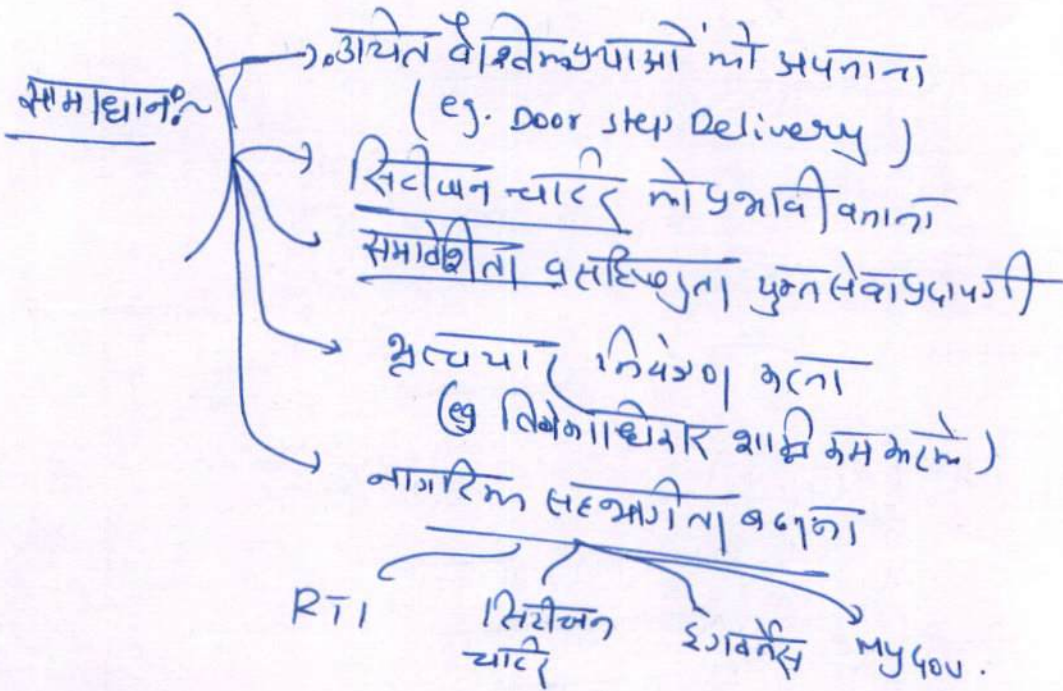 समाधान:~
उचित वैश्विक प्रथाओं को अपनाना
(eg. Door step Delivery)
सिटीजन चार्टर को प्रभावी बनाना
समावेशीता व सहिष्णुता युक्त सेवा प्रदायगी
भ्रष्टाचार नियंत्रण करना
(eg विवेकाधिकार शक्ति कम करके)
नागरिक सहभागीता बढ़ाना
RTI सिटीजन ईगवर्नेंस My Gov.
चार्टर